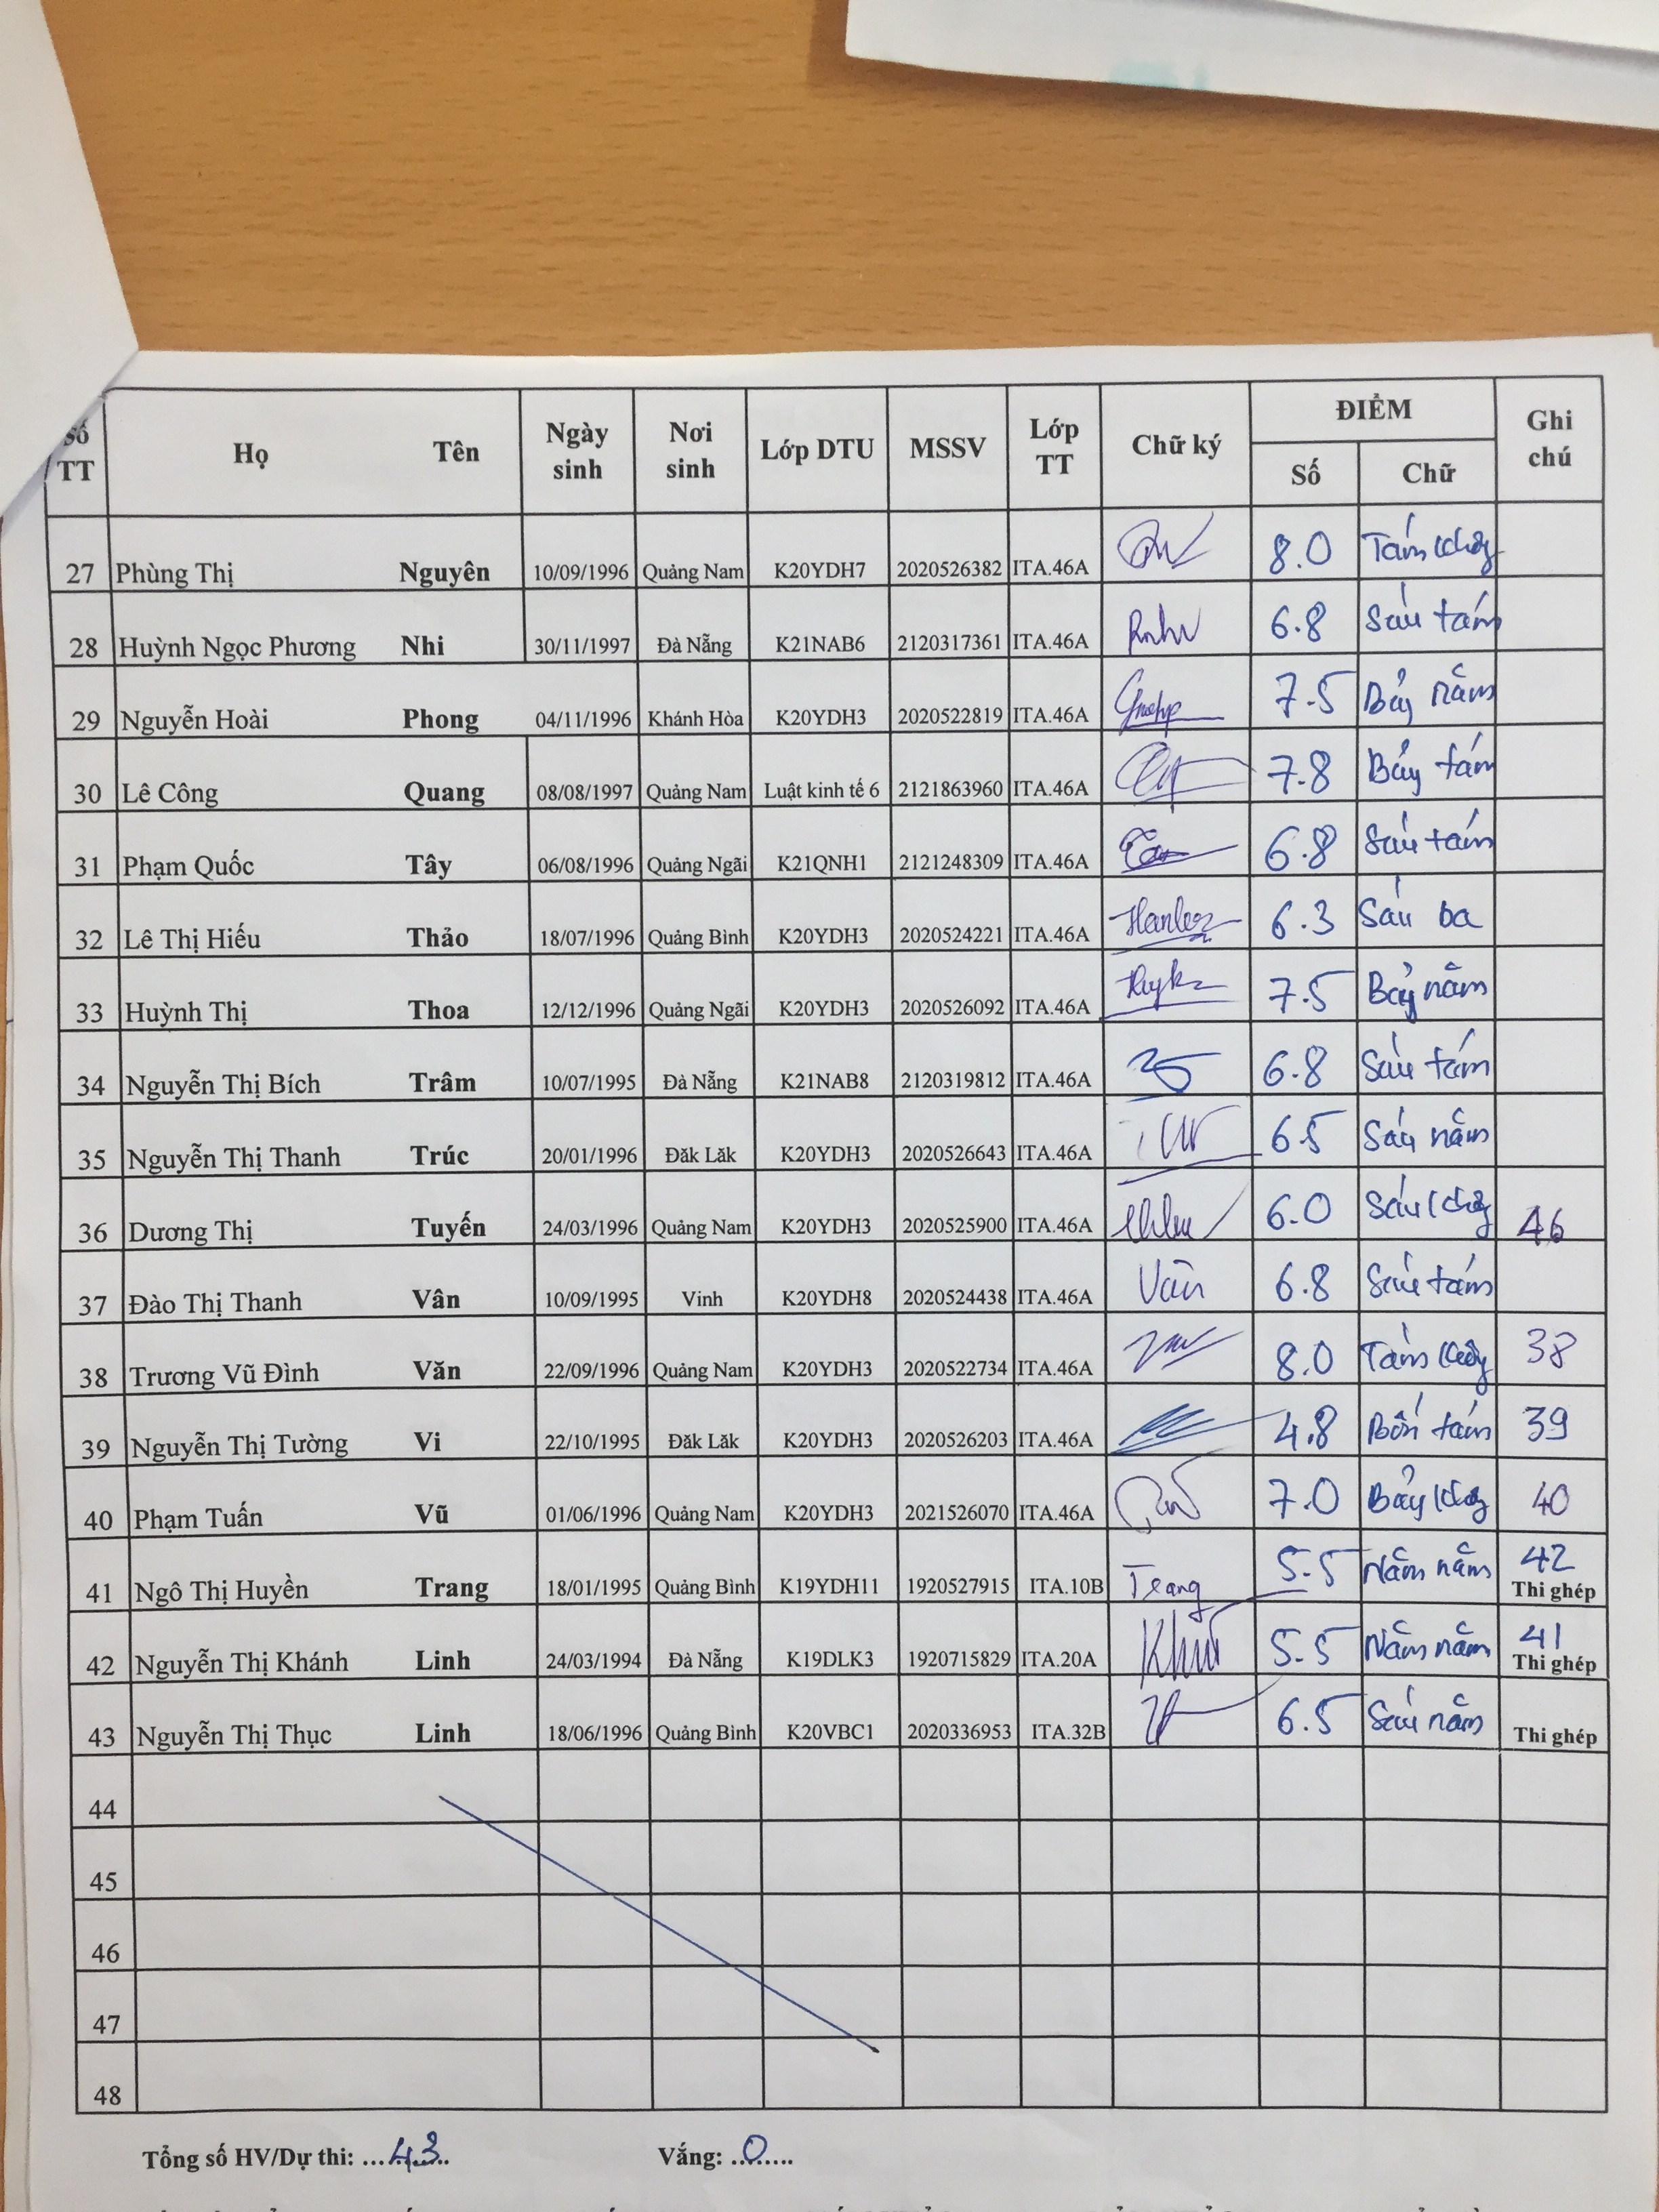 Số TT Họ Tên Ngày sinh Nơi sinh Lớp DTU MSSV Lớp TT Chữ ký ĐIỂM Số Chữ Ghi chú
27 Phùng Thị Nguyên 10/09/1996 Quảng Nam K20YDH7 2020526382 ITA.46A 8.0 Tám
28 Huỳnh Ngọc Phương Nhi 30/11/1997 Đà Nẵng K21NAB6 2120317361 ITA.46A 6.8 Sáu tám
29 Nguyễn Hoài Phong 04/11/1996 Khánh Hòa K20YDH3 2020522819 ITA.46A 7.5 Bảy năm
30 Lê Công Quang 08/08/1997 Quảng Nam Luật kinh tế 6 2121863960 ITA.46A 7.8 Bảy tám
31 Phạm Quốc Tây 06/08/1996 Quảng Ngãi K21QNH1 2121248309 ITA.46A 6.8 Sáu tám
32 Lê Thị Hiếu Thảo 18/07/1996 Quảng Bình K20YDH3 2020524221 ITA.46A 6.3 Sáu ba
33 Huỳnh Thị Thoa 12/12/1996 Quảng Ngãi K20YDH3 2020526092 ITA.46A 7.5 Bảy năm
34 Nguyễn Thị Bích Trâm 10/07/1995 Đà Nẵng K21NAB8 2120319812 ITA.46A 6.8 Sáu tám
35 Nguyễn Thị Thanh Trúc 20/01/1996 Đăk Lăk K20YDH3 2020526643 ITA.46A 6.5 Sáu năm
36 Dương Thị Tuyến 24/03/1996 Quảng Nam K20YDH3 2020525900 ITA.46A 6.0 Sáu 46
37 Đào Thị Thanh Vân 10/09/1995 Vinh K20YDH8 2020524438 ITA.46A Vân 6.8 Sáu tám
38 Trương Vũ Đình Văn 22/09/1996 Quảng Nam K20YDH3 2020522734 ITA.46A 8.0 Tám 38
39 Nguyễn Thị Tường Vi 22/10/1995 Đăk Lăk K20YDH3 2020526203 ITA.46A 4.8 Bốn tám 39
40 Phạm Tuấn Vũ 01/06/1996 Quảng Nam K20YDH3 2021526070 ITA.46A 7.0 Bảy 40
41 Ngô Thị Huyền Trang 18/01/1995 Quảng Bình K19YDH11 1920527915 ITA.10B Trang 5.5 Năm năm 42 Thi ghép
42 Nguyễn Thị Khánh Linh 24/03/1994 Đà Nẵng K19DLK3 1920715829 ITA.20A 5.5 Năm năm 41 Thi ghép
43 Nguyễn Thị Thục Linh 18/06/1996 Quảng Bình K20VBC1 2020336953 ITA.32B 6.5 Sáu năm Thi ghép
44
45
46
47
48
Tổng số HV/Dự thi: ...43... Vắng: ...0....